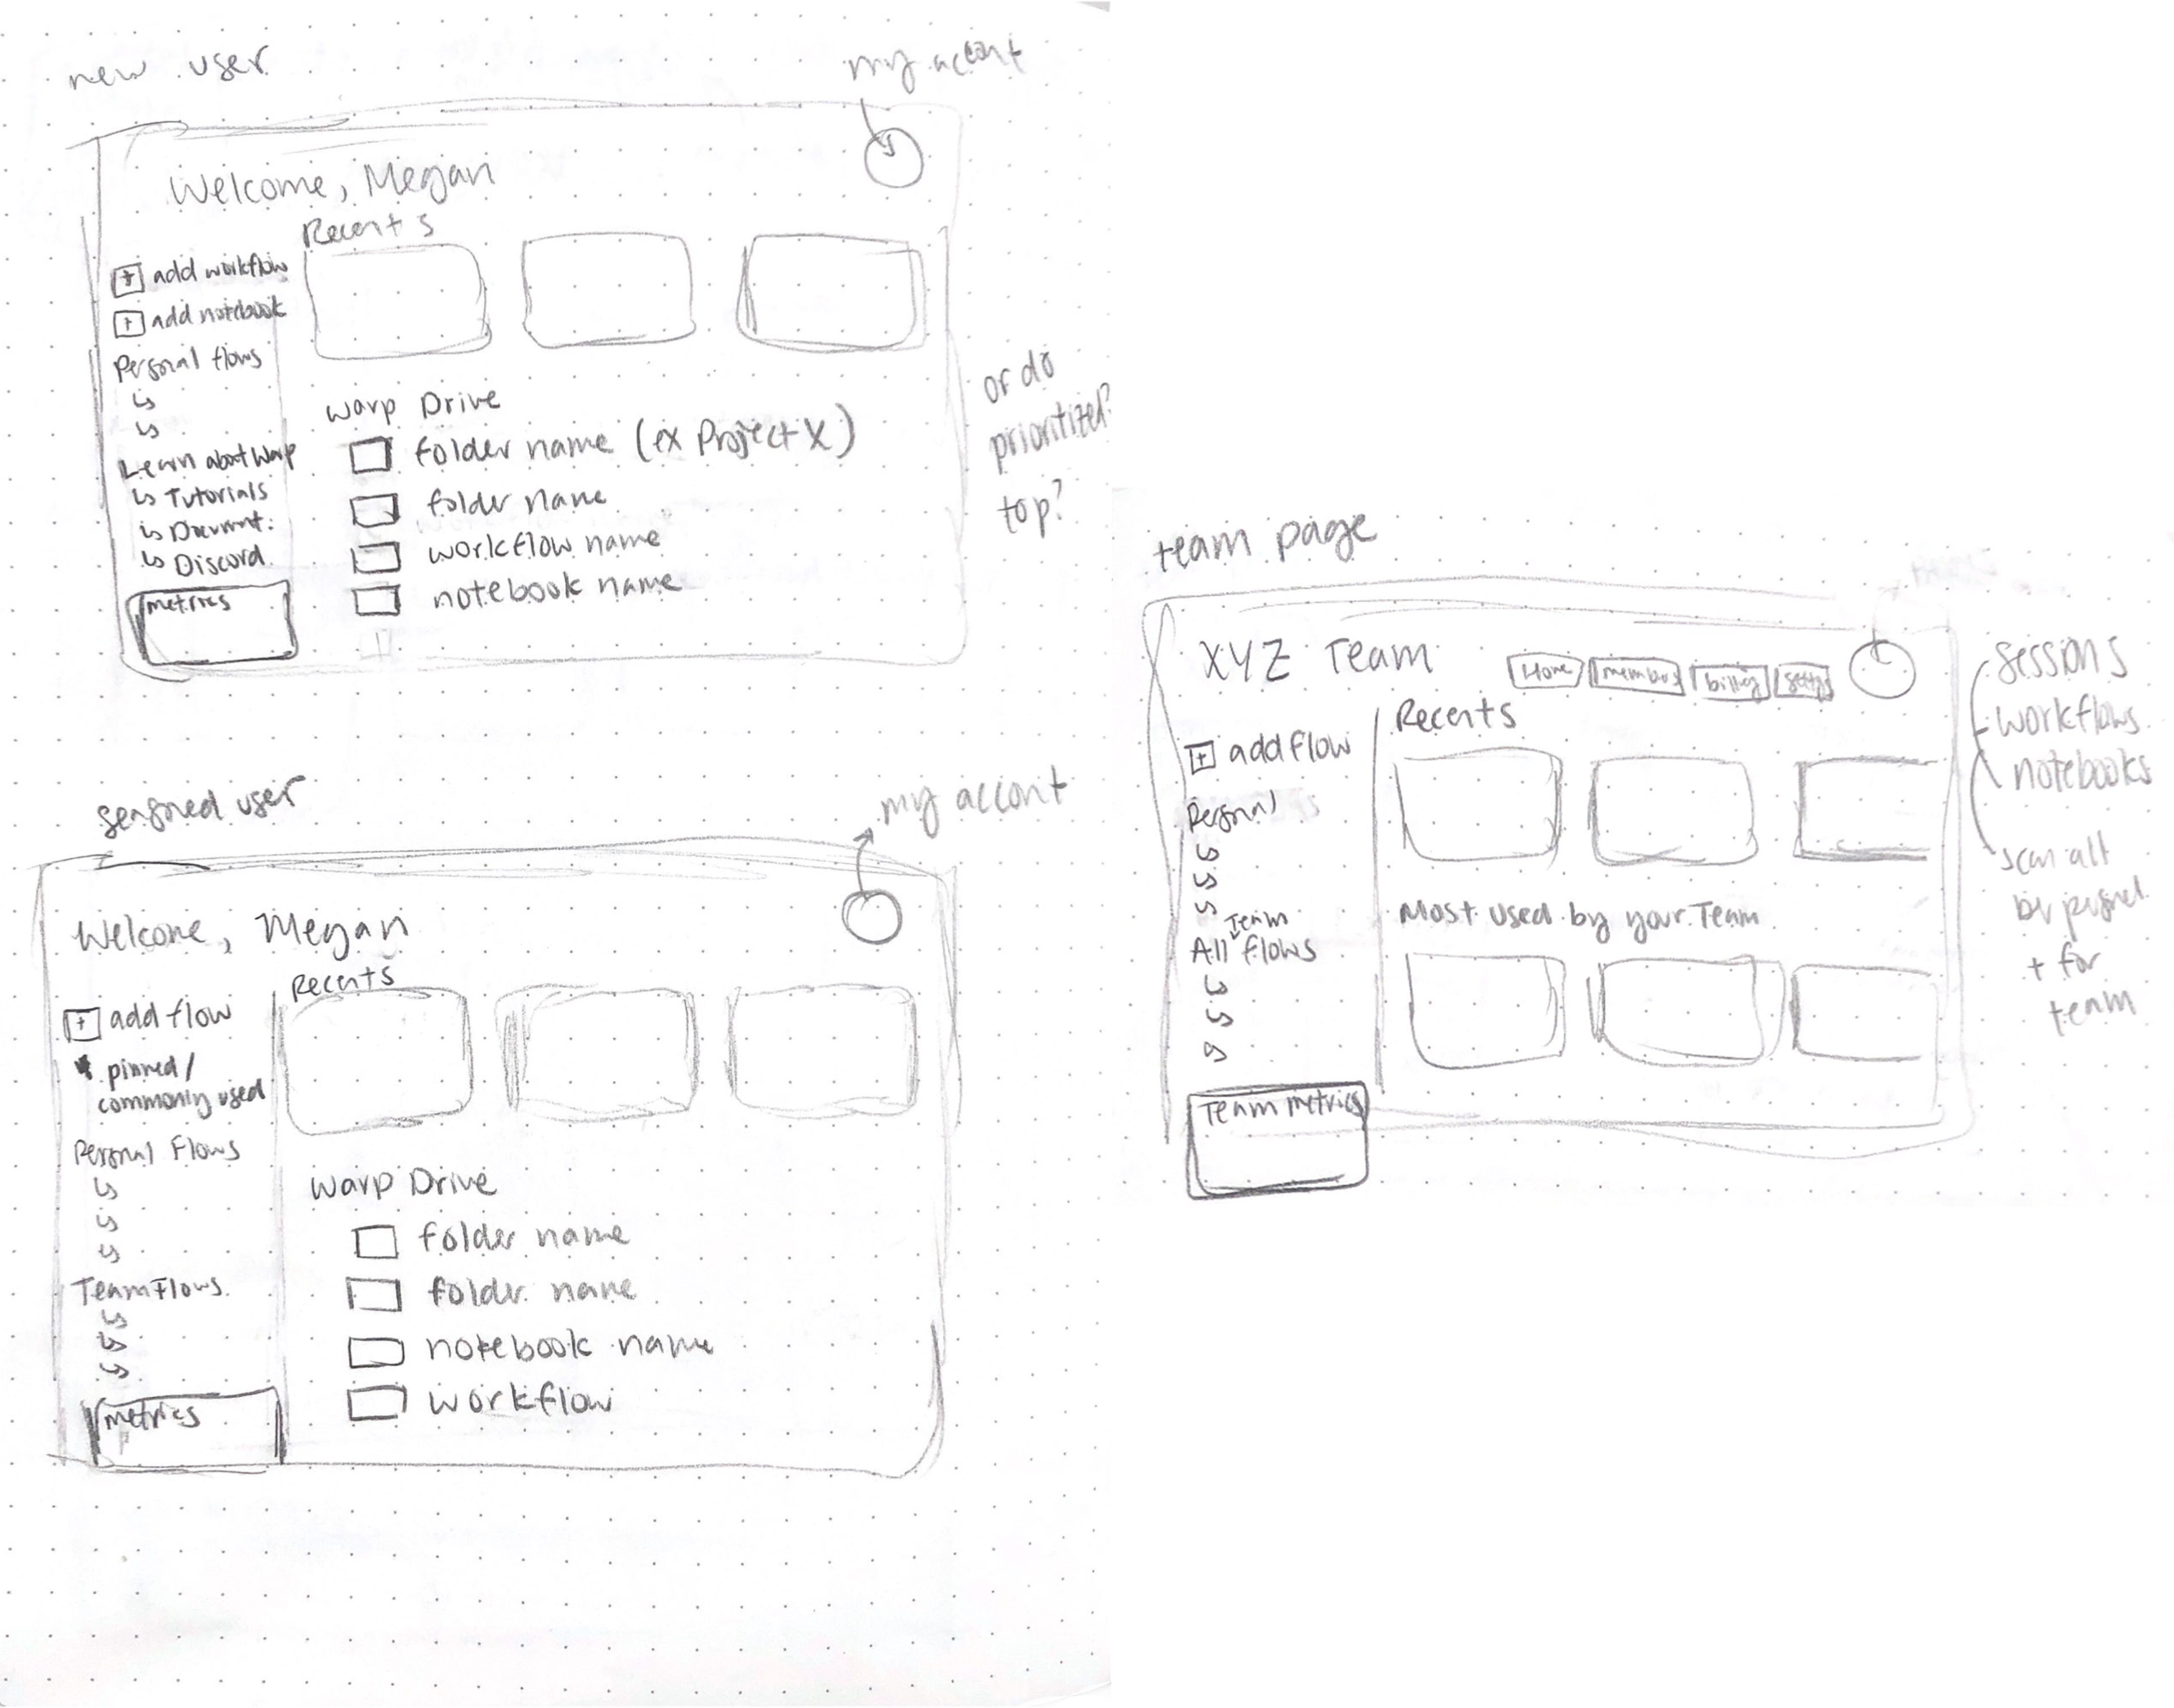 new user
my account
Welcome, Megan
Recents
+ add workflow
+ add notebook
Personal flows
Learn about Warp
↳ Tutorials
↳ Document.
↳ Discord
metrics
Warp Drive
folder name (ex Project X)
folder name
workflow name
notebook name
or do
prioritized?
top?
seasoned user
my account
Welcome, Megan
Recents
+ add flow
pinned/
commonly used
Personal Flows
Team Flows
metrics
Warp Drive
folder name
folder name
notebook name
workflow
team page
XYZ Team
Home
members
billing
Recents
+ add flow
Personal
Team
All flows
Team metrics
Most used by your Team
sessions
workflows
notebooks
be personal
+ for
team